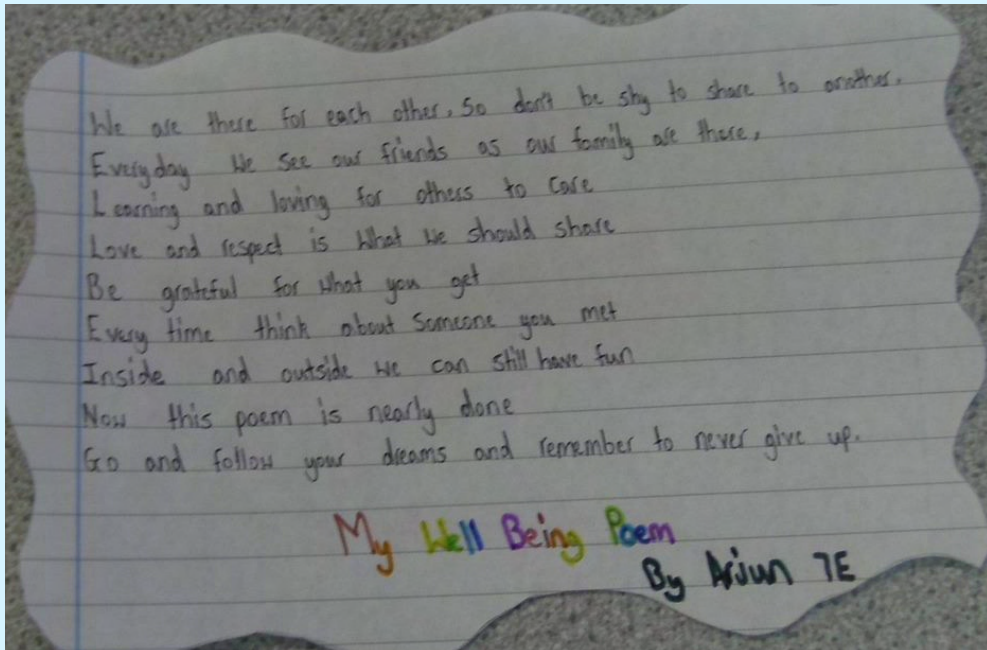 We are there for each other, So don't be shy to share to another.
Everyday We see our friends as our family are there,
Learning and loving for others to care
Love and respect is What we should share
Be grateful for What you get
Every time think about Someone you met
Inside and outside we can still have fun
Now this poem is nearly done
Go and follow your dreams and remember to never give up.
My Well Being Poem
By Arjun 7E